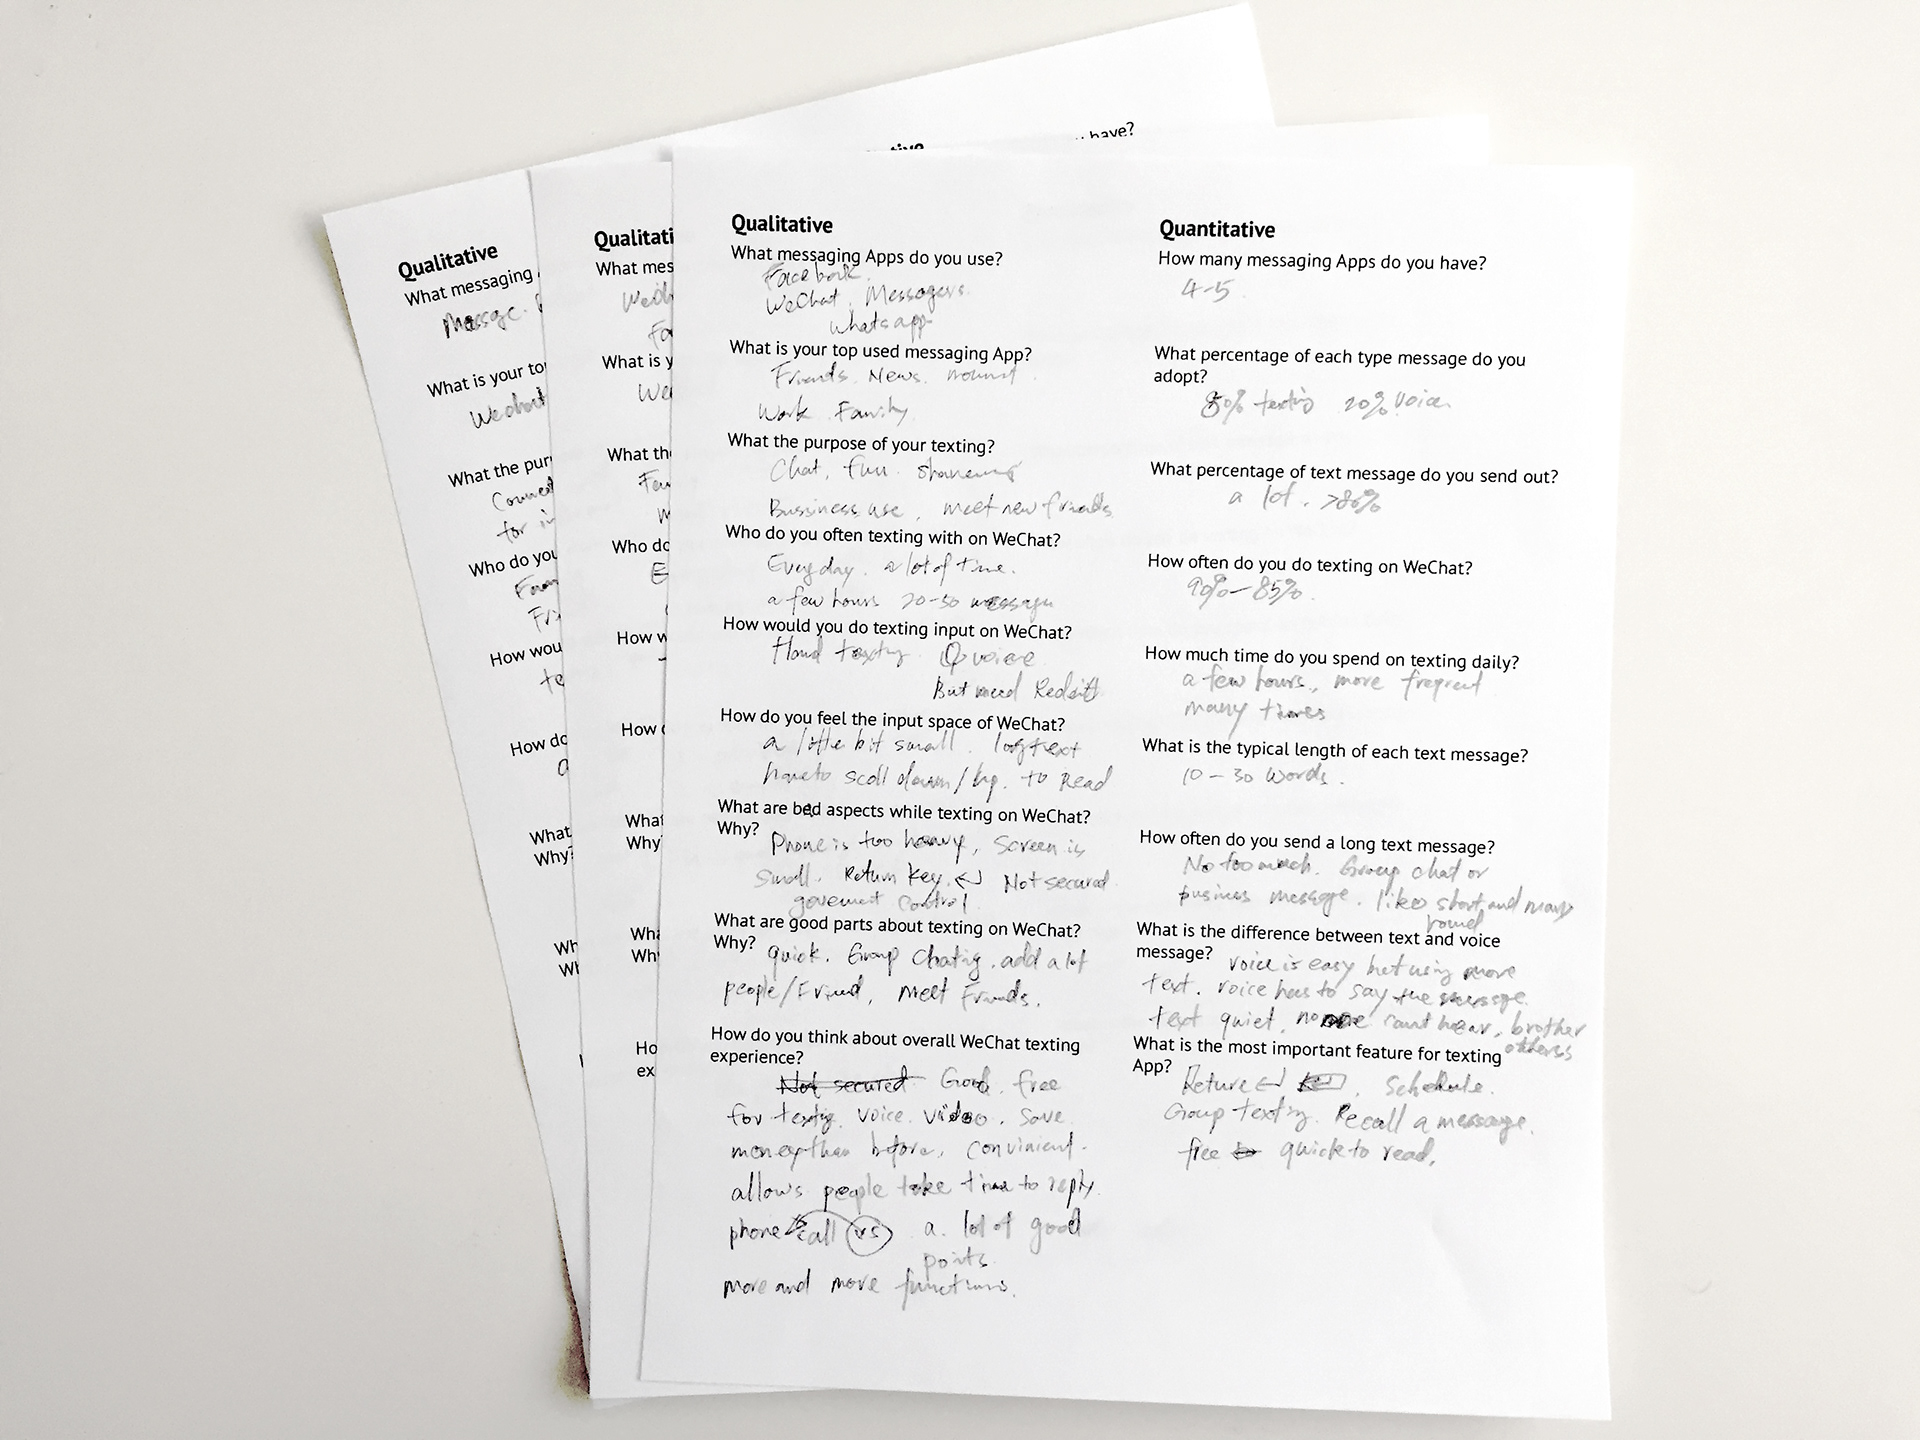 have?
Qualitative
What messaging
Message.
What is your to
Wechat
What the pur
Connect
for in
Who do you
Fri
How wou
te
How do
a
What
Why?
Wh
Wh
Qualitati
What mes
Wech
Fa
What is y
We
What the
M
Who do
E
How w
How
What
Why
Wha
Wh
Ho
ex
Qualitative
What messaging Apps do you use?
Facebook.
WeChat. Messagers.
whatsapp
What is your top used messaging App?
Friends. News.
Work. Family.
What the purpose of your texting?
Chat, fun.
Bussiness use, meet new friends.
Who do you often texting with on WeChat?
Everyday. a lot of time.
a few hours 20-50 message
How would you do texting input on WeChat?
Hand texting. voice
But need
How do you feel the input space of WeChat?
a little bit small. long text
have to scoll down/up. to Read
What are bad aspects while texting on WeChat?
Why? Phone is too heavy, Screen is
small. Return key. ↵ Not secured
goverment control.
What are good parts about texting on WeChat?
Why? quick. Group chating. add a lot
people/Friend, meet Friends.
How do you think about overall WeChat texting
experience?
Not secured Good. free
for texting. voice. video. save
money than before, convinient.
allows people take time to reply.
phone call vs a lot of good
points.
more and more functions.
Quantitative
How many messaging Apps do you have?
4-5
What percentage of each type message do you
adopt?
80% texting 20% voice.
What percentage of text message do you send out?
a lot. >80%
How often do you do texting on WeChat?
90%-85%.
How much time do you spend on texting daily?
a few hours, more freqreut
many times
What is the typical length of each text message?
10-30 words.
How often do you send a long text message?
No too much. Group chat or
business message. like short and many
round
What is the difference between text and voice
message? voice is easy but using more
text. voice has to say the message.
text quiet, can't hear, brother
others
What is the most important feature for texting
App? Reture ↵ . Schedule.
Group texting. Recall a message.
free quick to read.